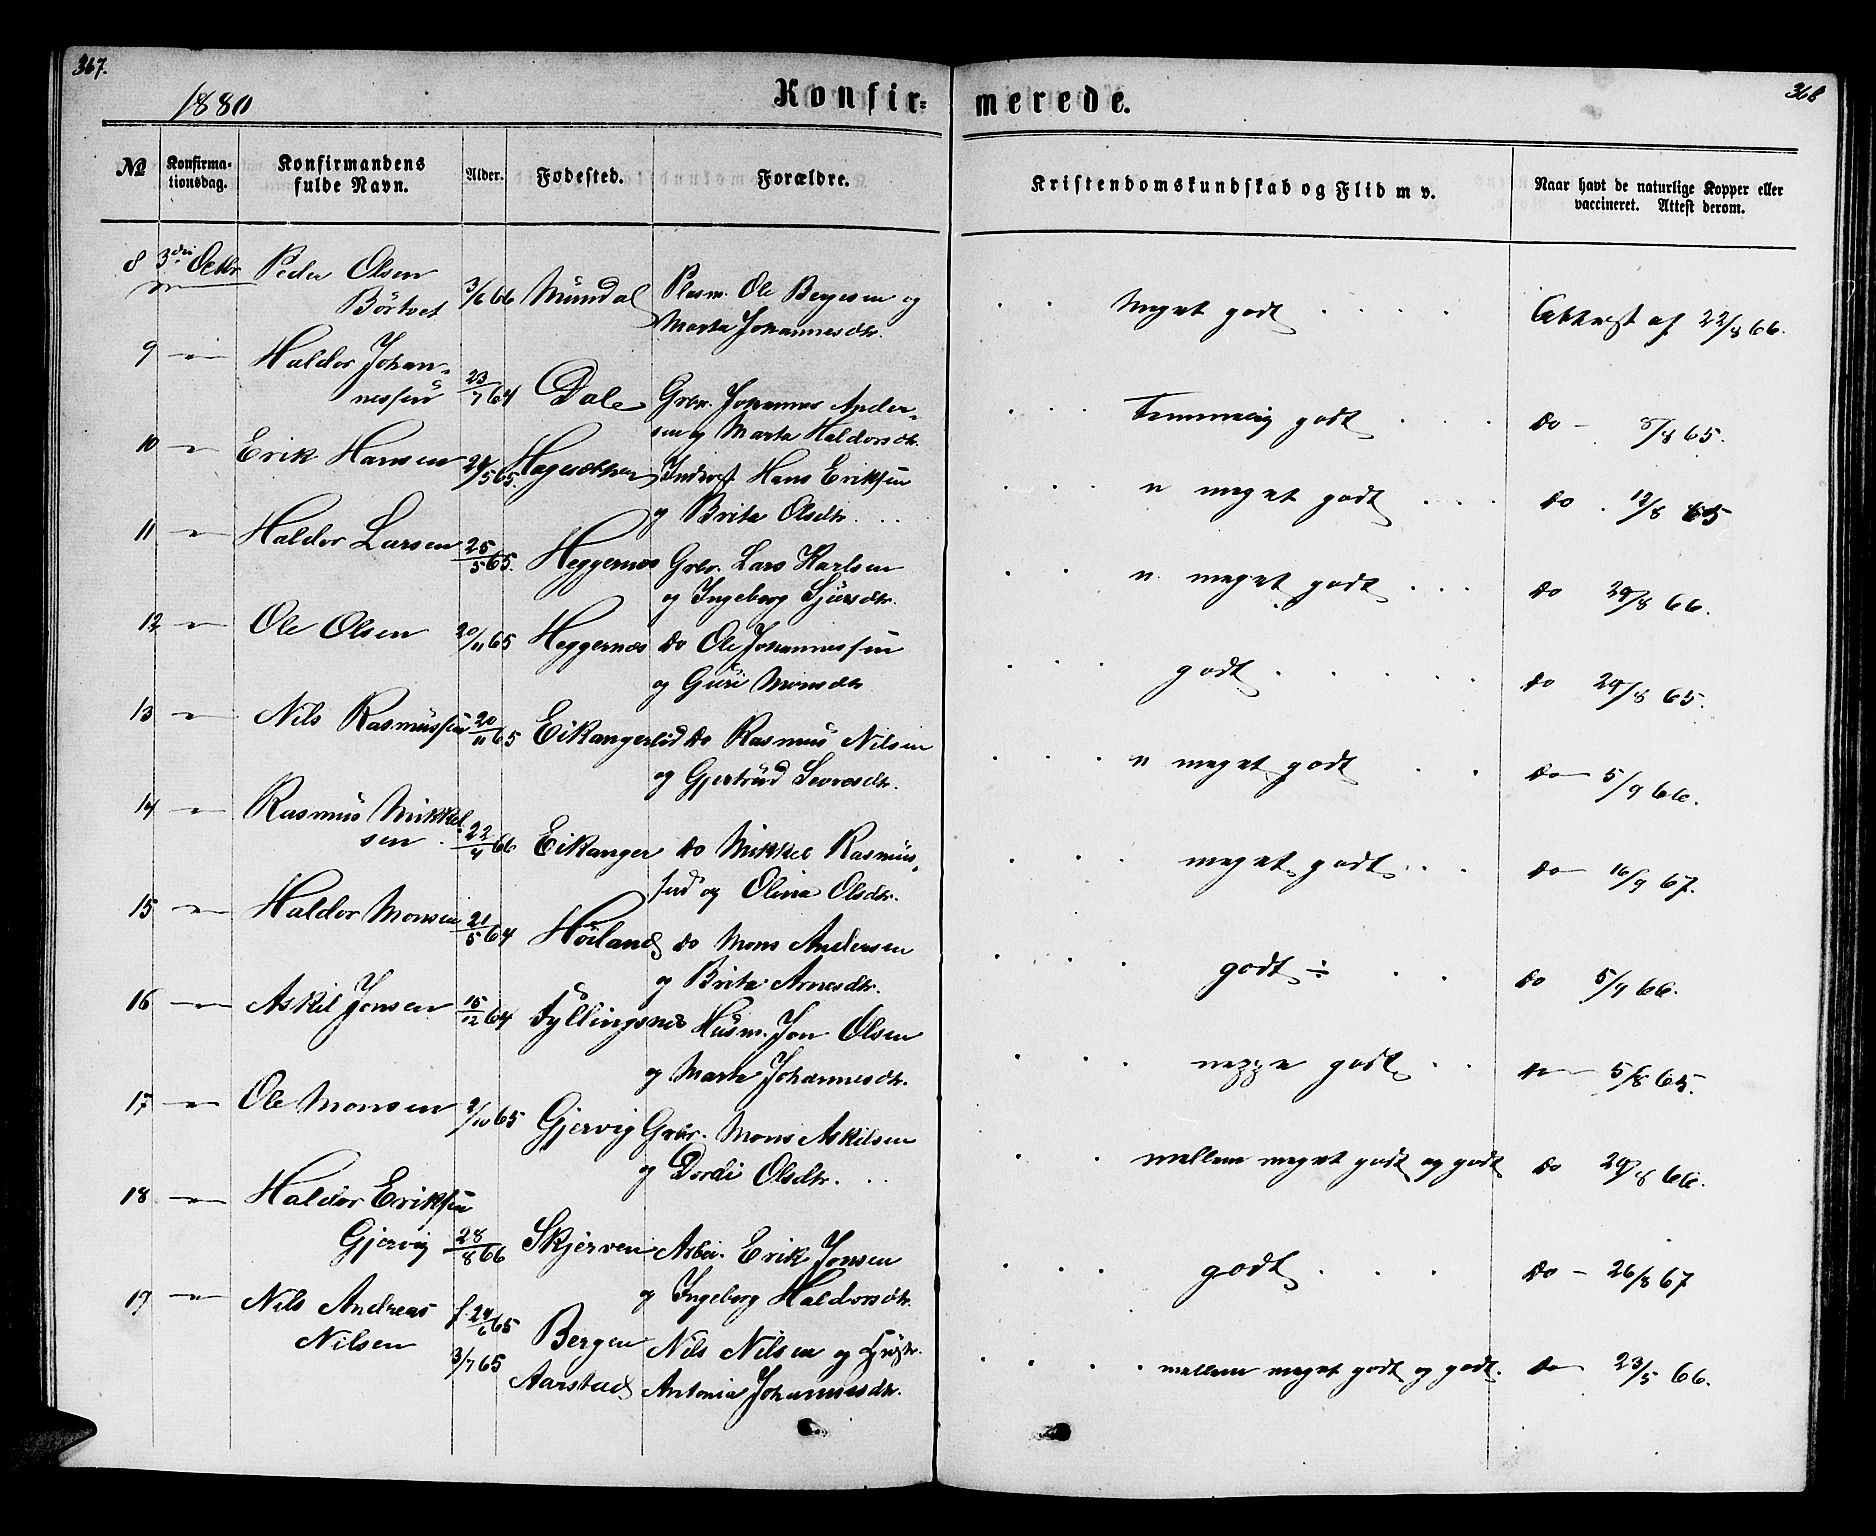 367.
368
1880
Konfir=
merede.
No
Konfirma=
tionsdag.
Konfirmandens
fulde Navn.
Alder.
Fødested.
Forældre.
Kristendomskundskab og Flid m v.
Naar havt de naturlige Kopper eller
vaccineret. Attest derom.
8 3die Octbr Peder Olsen
Börtvet 3/6 66 Mundal Plesm. Ole Bergesen og
Marta Johannesdtr. Meget godt . . . . Attest af 22/8 66.
9 —"— Haldor Johan-
nessen 23/7 64 Dale Grbr. Johannes Ander-
sen og Marta Haldorsdtr. Temmelig godt . . . do — 5/8 65.
10 —"— Erik Hansen 24/5 65. Hagesæther Inderst Hans Eriksen
og Brita Olsdtr. . . . n meget godt . . . do . 12/8 65
11 —"— Haldor Larsen 25/5 65. Heggernæs Grbr. Lars Karlsen
og Ingeborg Sjursdtr. n. meget godt . . . do 29/8 66.
12 —"— Ole Olsen 20/11 65 Heggernæs do Ole Johannessen
og Guri Monsdtr godt . . . . . do 24/8 65.
13 —"— Nils Rasmussen 20/11 65 Eikangerlid do Rasmus Nilsen
og Gjertrud dtr. n meget godt . . do — 5/9 66.
14 —"— Rasmus Mikkel-
sen . 22/4 66 Eikanger do Mikkel Rasmus-
sen og Olina Olsdtr. meget godt . . . do — 16/9 67.
15 —"— Haldor Monsen 21/5 64 Höiland do Mons Andersen
og Brita Arnesdtr. godt ÷ . . do 5/9 66.
16 —"— Askil Jonsen 15/12 64 Fyllingsnæs Husm. Jon Olsen
og Marta Johannesdtr. neppe godt . . do — 5/8 65.
17 —"— Ole Monsen 2/10 65 Gjervig Grbr. Mons Askilsen
og Dordi Olsdtr. . . mellem meget godt og godt do 29/8 66.
18 —"— Haldor Eriksen
Gjervig 28/8 66 Skjerven Arbei. Erik Jonsen
og Ingeborg Haldorsdtr. godt . . . do — 26/8 67
19 —"— Nils Andreas
Nilsen f. 24/6 65
3/7 65 Bergen
Aarstad Nils Nilsen og Hustr.
Antonia Johannesdtr. mellem meget godt og godt. do — 23/5 66.